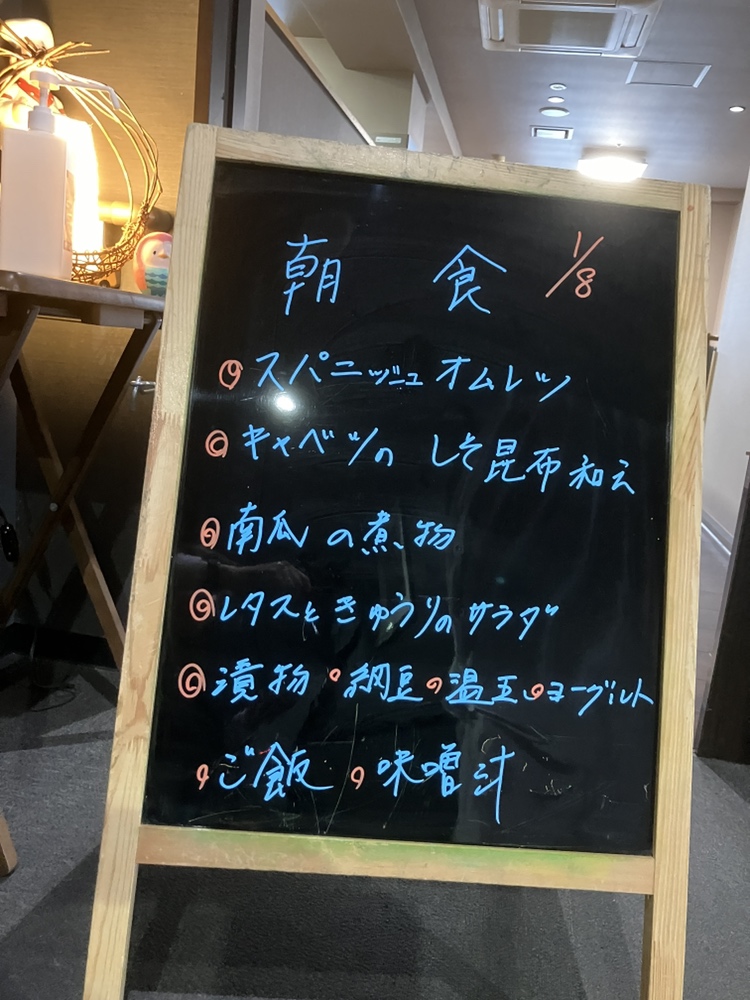 朝食 1/8
◎スパニッシュオムレツ
◎キャベツの しそ昆布和え
◎南瓜の煮物
◎レタスときゅうりのサラダ
◎漬物・納豆・温玉・ヨーグルト
・ご飯 ・味噌汁